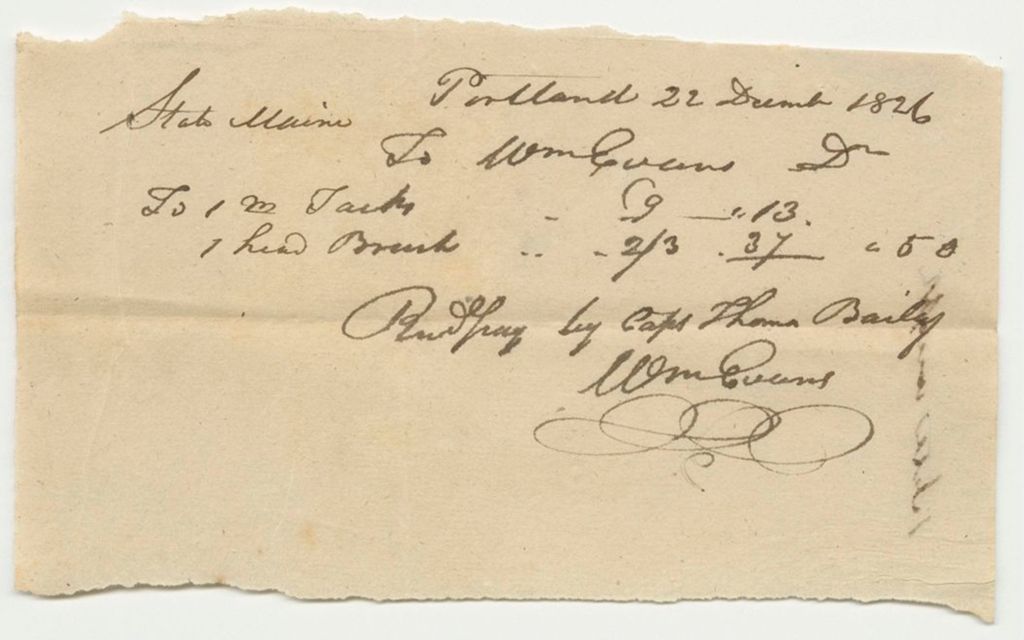 Portland 22 Decemb 1826
State Maine
To Wm Evans Dr
To 1 m Tacks - 9 — "13.
1 head Brush .. - 2/3 . 37 " 50
Recd pay by Capt Thomas Baily
Wm Evans